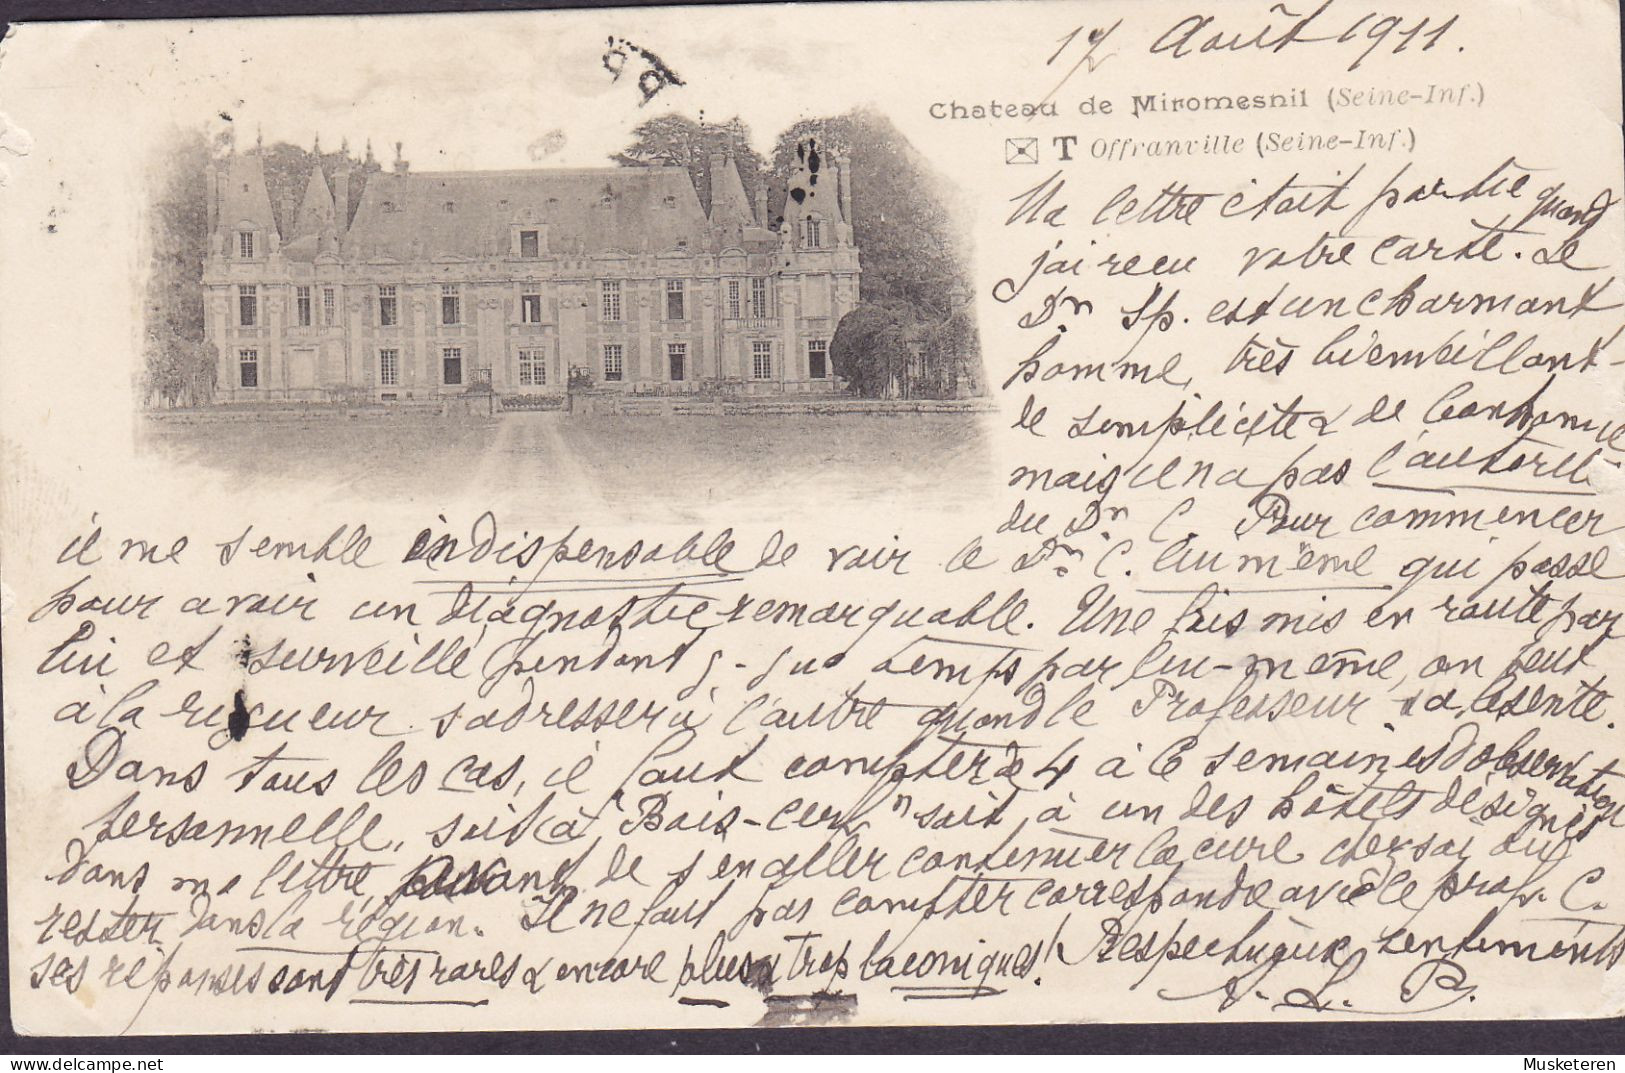 17 Août 1911.
Chateau de Miromesnil (Seine-Inf.)
T Offranville (Seine-Inf.)
Ma lettre était partie quand
j'ai recu votre carte. Le
Dr Sp. est un charmant
homme, très bienveillant -
de simplicité & de bonhomie
mais il n'a pas l'autorité
du Dr C. Pour commencer
il me semble indispensable de voir le Dr C. lui même qui passe
pour avoir un diagnostic remarquable. Une fois mis en route par
lui et surveillé pendant temps par lui-même, on peut
à la rigueur s'adresser à l'autre quand le Professeur s'absente.
Dans tous les cas, il faut compter de 4 à 6 semaines d'observation
personnelle, soit à Bois-Cerf soit à un des hôtels désignés
dans ma lettre, avant de s'en aller continuer la cure chez soi ou
rester dans la région. Il ne faut pas compter correspondre avec le prof. C.
ses réponses sont très rares & encore plus & trop laconiques! Respectueux sentiments
A. L. B.
P P
Musketeren